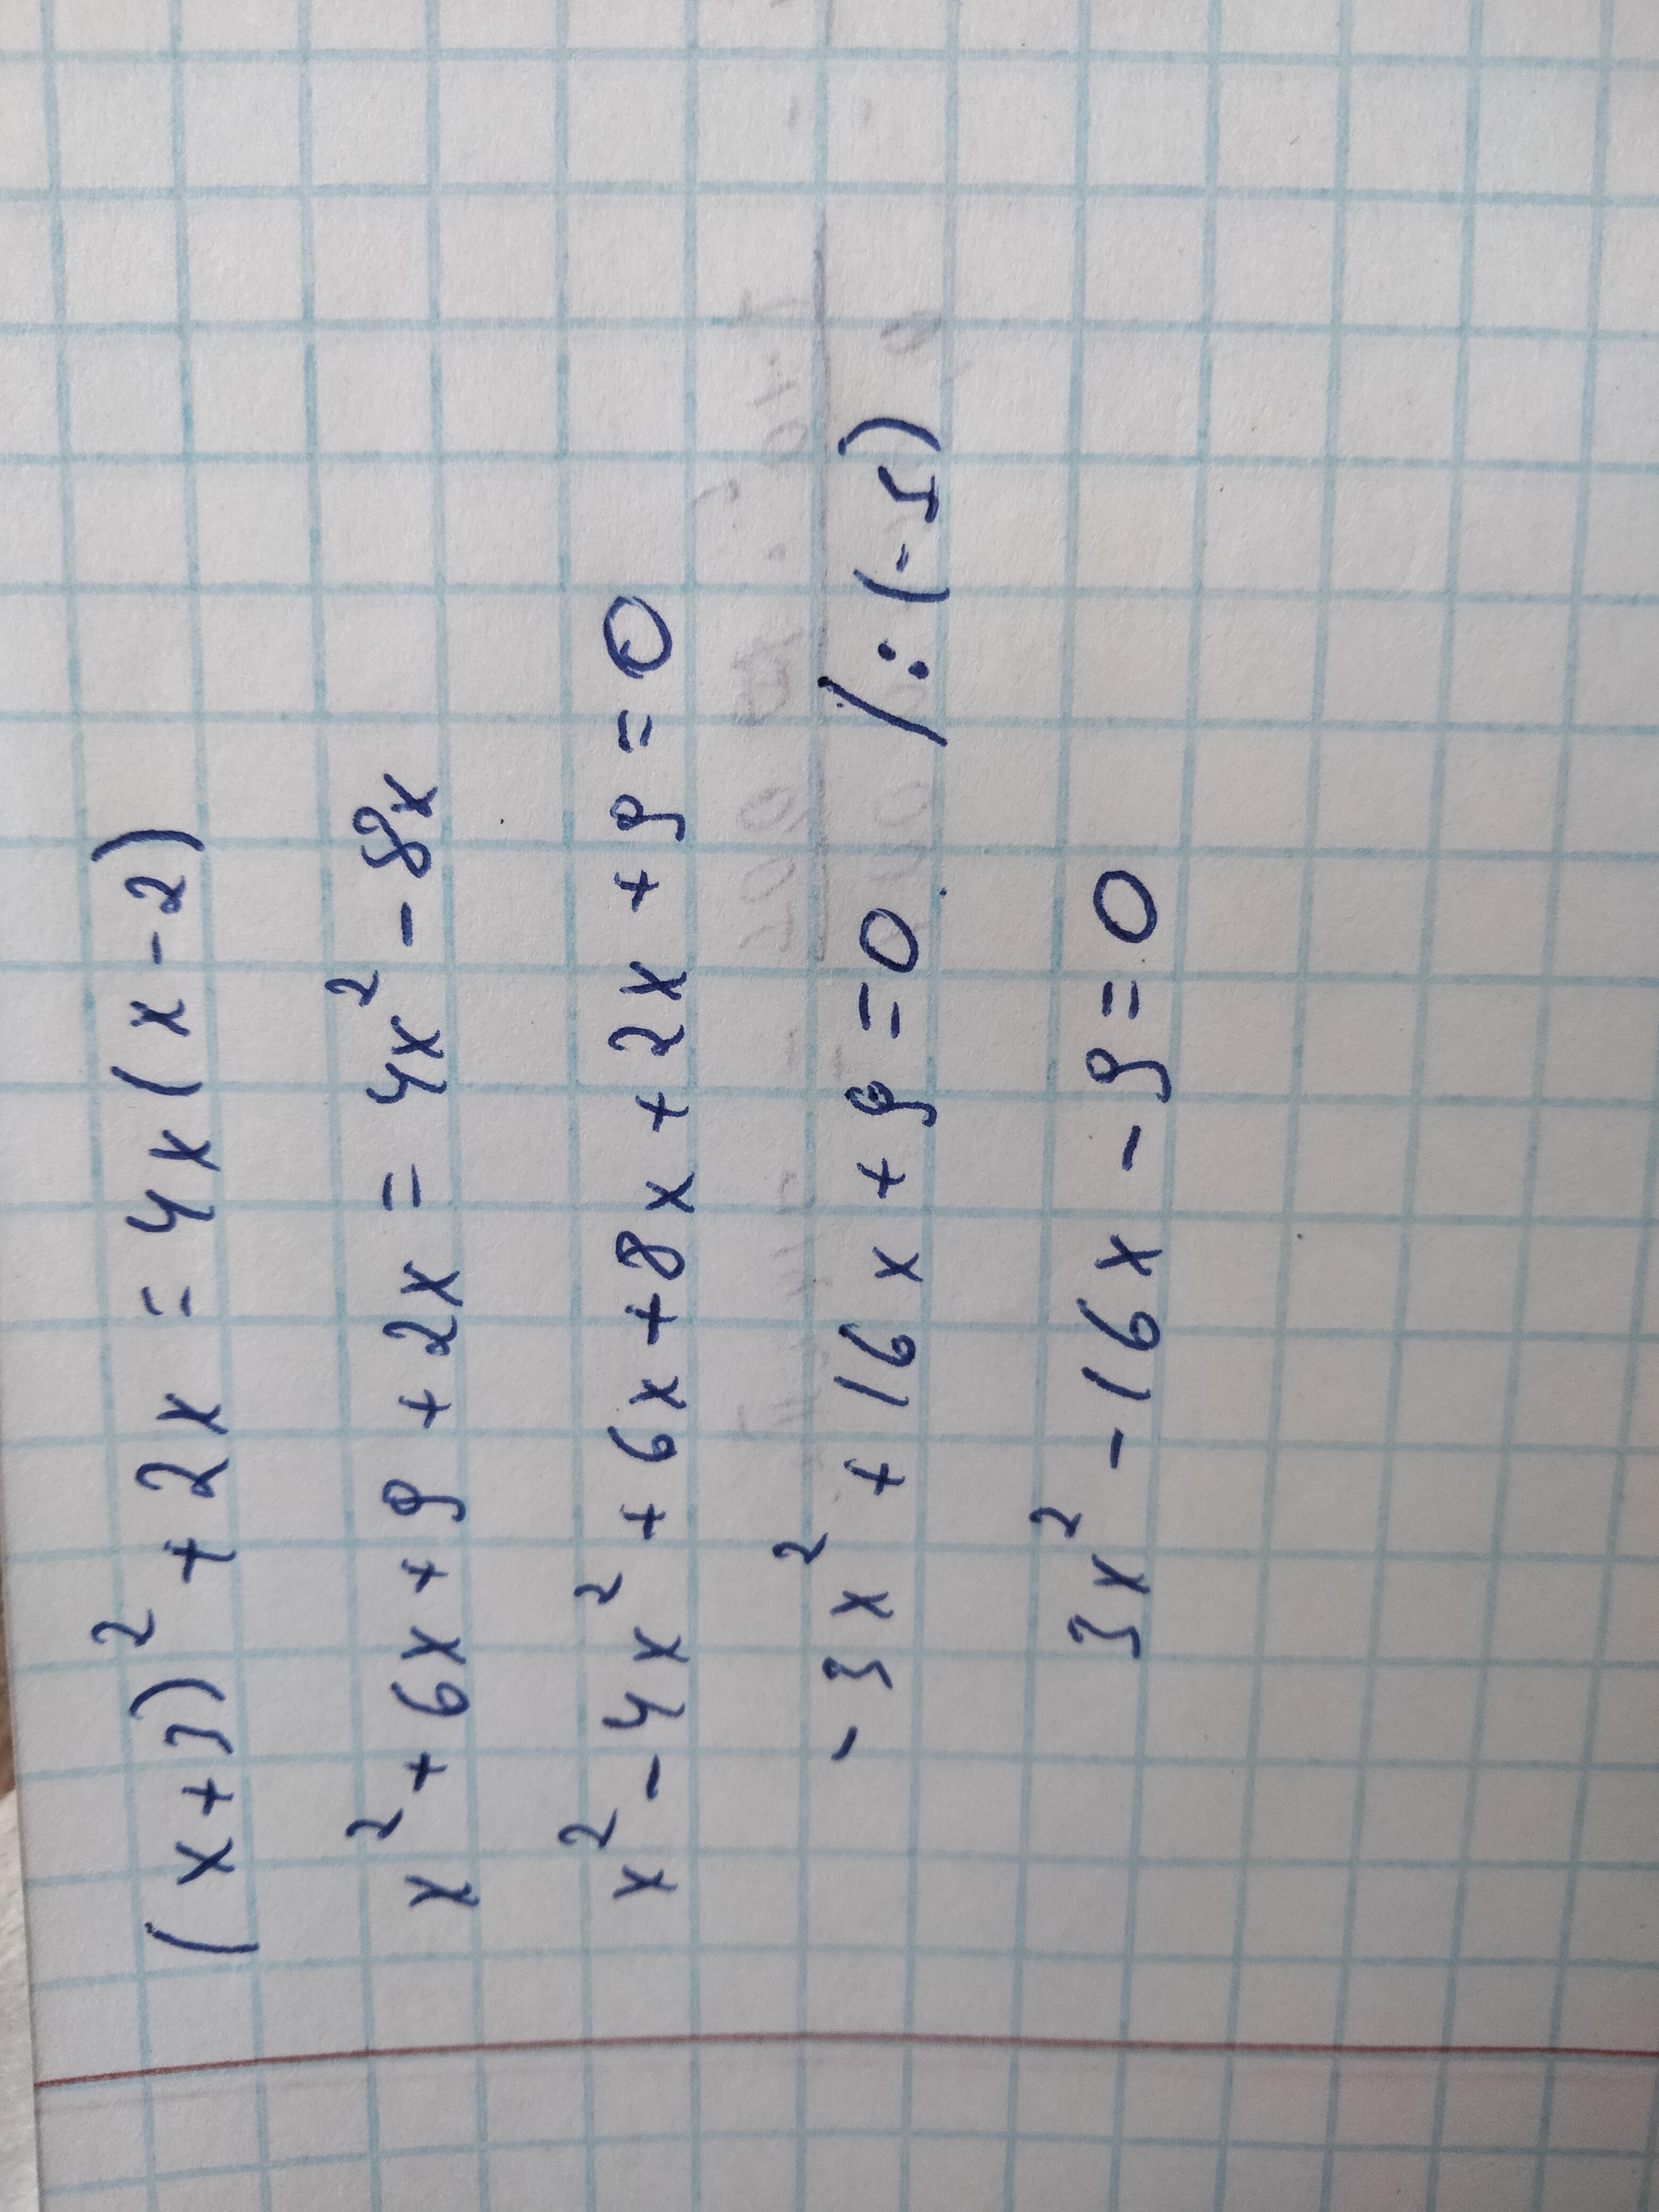 (x+3)² + 2x = 4x(x-2)
x² + 6x + 9 + 2x = 4x² - 8x
x² - 4x² + 6x + 8x + 2x + 9 = 0
- 3x² + 16x + 9 = 0 /:(-1)
3x² - 16x - 9 = 0